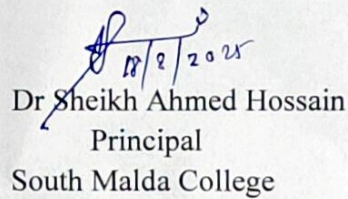 18/8/2025
Dr Sheikh Ahmed Hossain
Principal
South Malda College